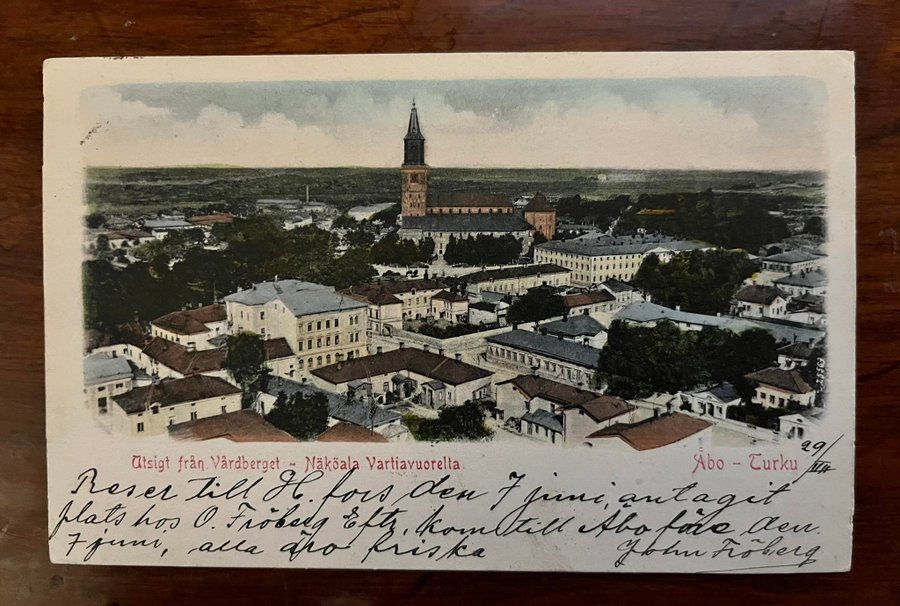 Utsigt från Vårdberget - Näköala Vartiavuorelta
Åbo - Turku
29/
Reser till H. fors den 7 juni, antagit
plats hos O. Fröberg Eftr, kom till Åbo före den
7 juni, alla äro friska
John Fröberg